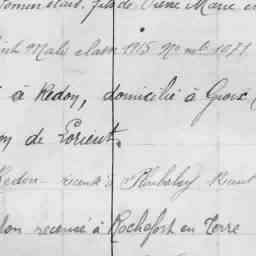 fils de Pierre Marie
Male classe 1915 No mle 1071
à Redon, domicilié à Groix
de Lorient.
Redon recensé à Ploubalay
recensé à Rochefort en Terre